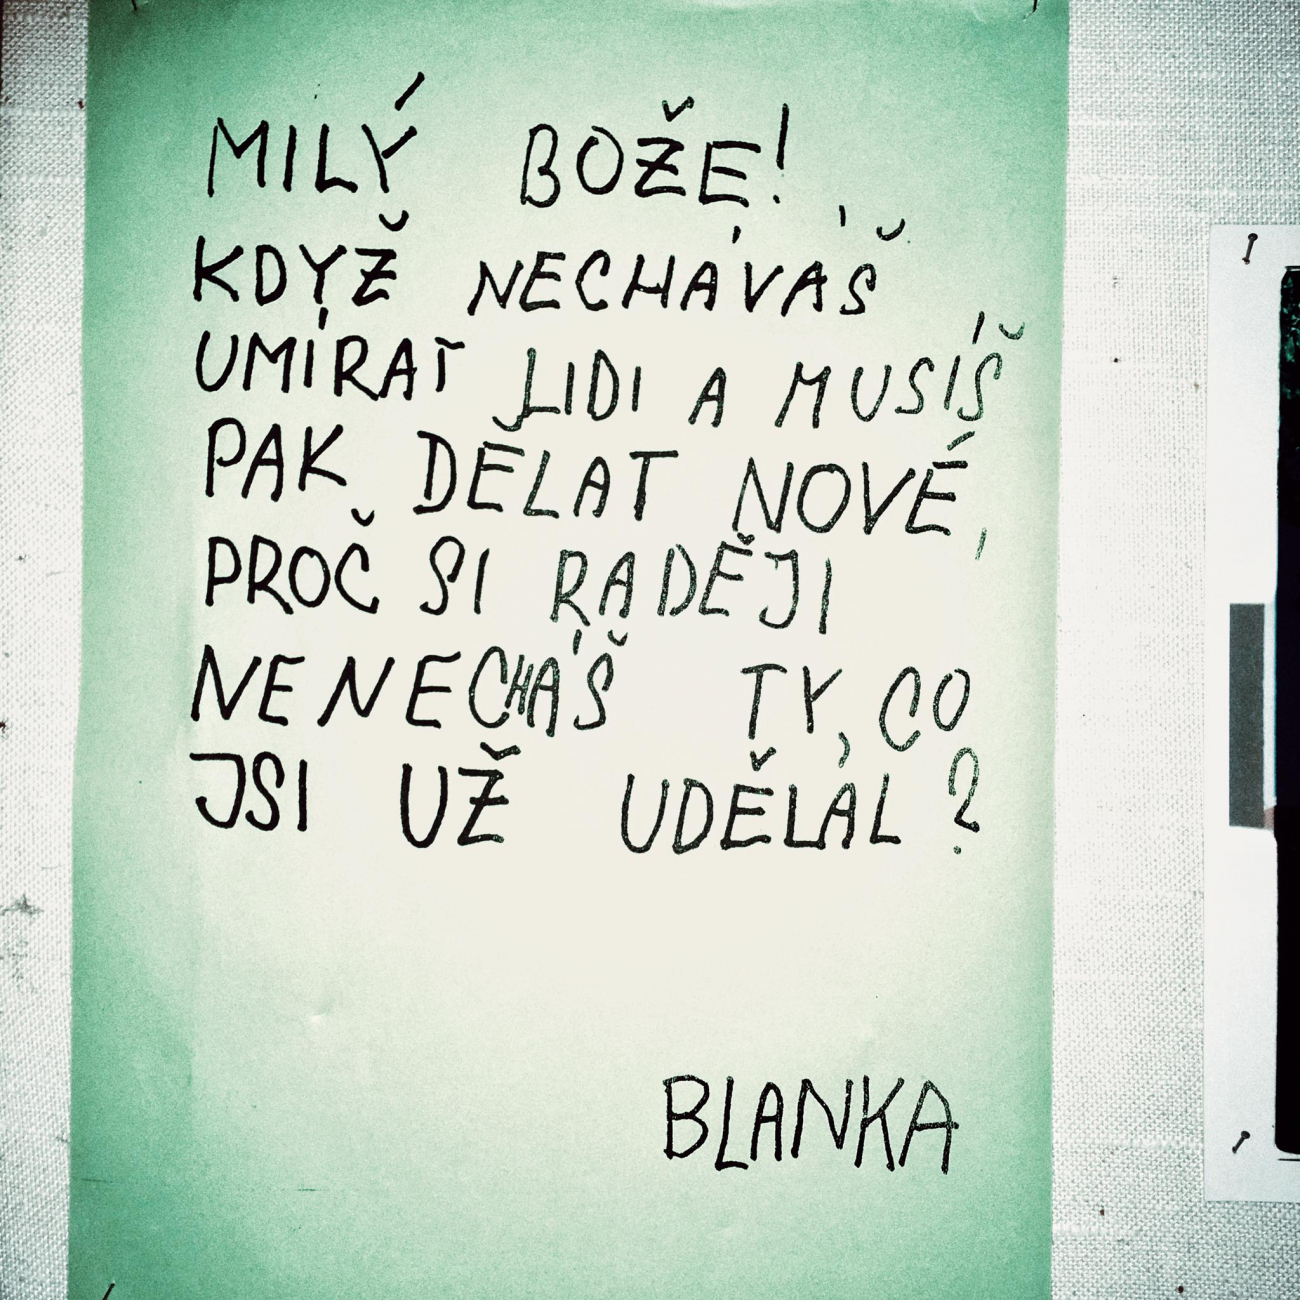 MILÝ BOŽE!
KDYŽ NECHÁVÁŠ
UMÍRAT LIDI A MUSÍŠ
PAK DĚLAT NOVÉ,
PROČ SI RADĚJI
NENECHÁŠ TY, CO
JSI UŽ UDĚLAL?
BLANKA